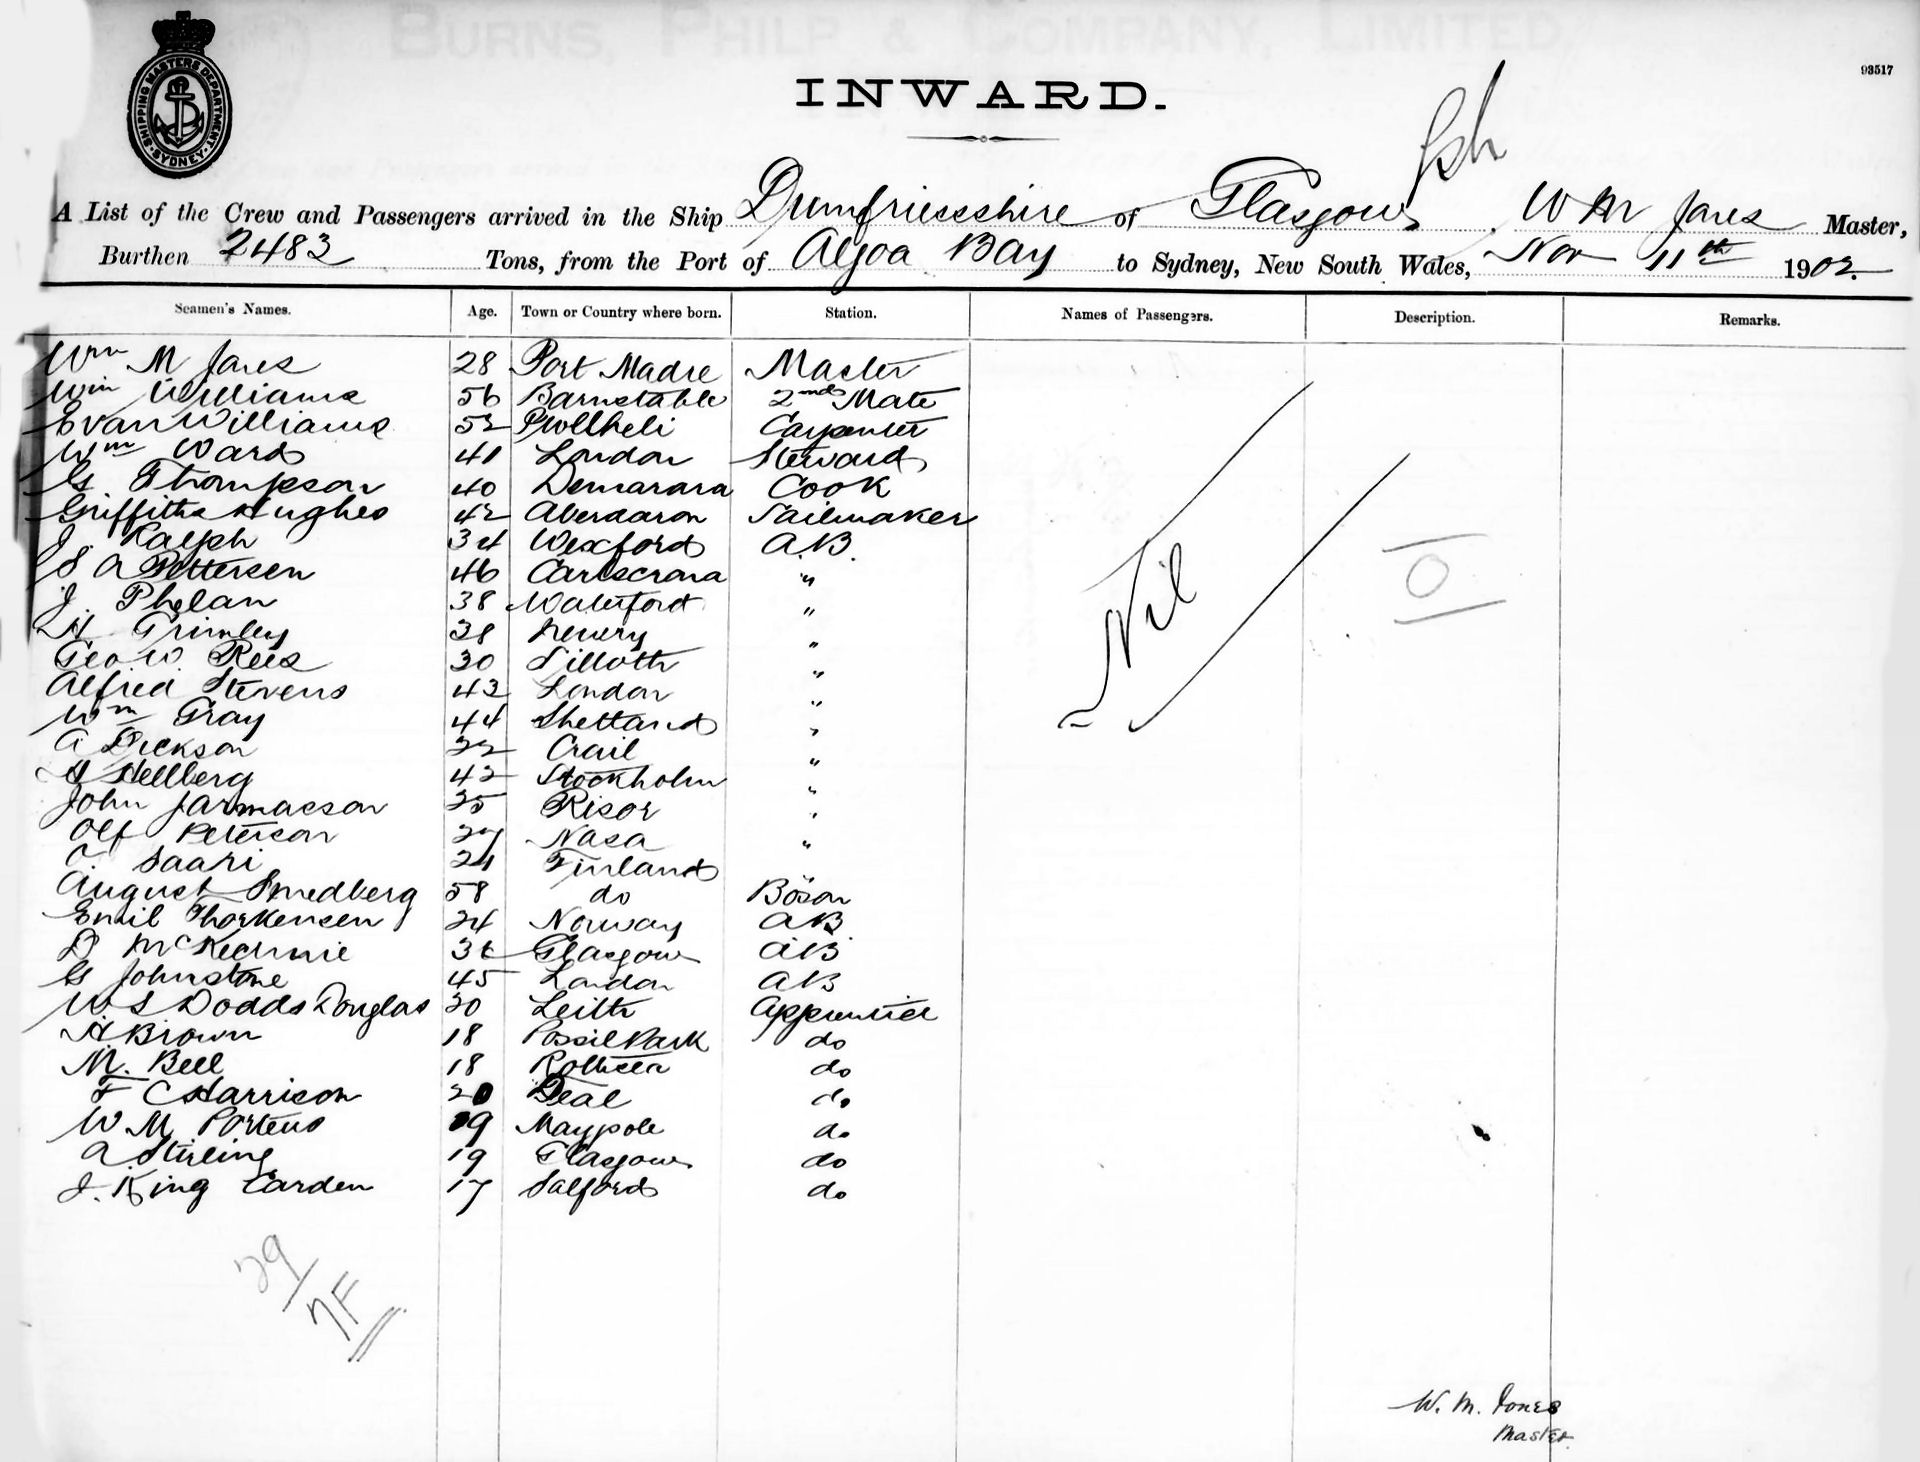 BURNS, PHILP & COMPANY, LIMITED
SHIPPING MASTERS DEPARTMENT
SYDNEY
93517
INWARD.
A List of the Crew and Passengers arrived in the Ship Dumfriesshire of Glasgow, W M Jones Master,
Burthen 2483 Tons, from the Port of Algoa Bay to Sydney, New South Wales, Nov 11th 1902.
Seamen's Names. Age. Town or Country where born. Station. Names of Passengers. Description. Remarks.
Wm M Jones 28 Port Madre Master
Wm Williams 56 Barnstable 2nd Mate
Evan Williams 52 Pwllheli Carpenter
Wm Ward 41 London Steward
G Thompson 40 Demarara Cook
Griffiths Hughes 42 Aberdaron Sailmaker
J Ralph 34 Wexford A.B.
S A Pettersen 46 Carlscrona "
J. Phelan 38 Waterford "
H Grimley 38 Newry "
Geo. W. Rees 30 Silloth "
Alfred Stevens 43 London "
Wm Gray 44 Shetland "
A Dickson 22 Crail "
H Hellberg 42 Stockholm "
John Jarmacson 25 Risor "
Olf Peterson 27 Nasa "
O. Saari 24 Finland
August Smedberg 58 do Bosun
Emil Thorkensen 24 Norway AB
D McKechnie 36 Glasgow AB
G Johnstone 45 London AB
W S Dodds Douglas 20 Leith Apprentice
A. Brown 18 Possil Park do
M. Bell 18 Rothsea do
F C Harrison 20 Deal do
W M Porteus 19 Maypole do
A Stirling 19 Glasgow do
J. King Earden 17 Salford do
Nil
O
29/
7F
W. M. Jones
Master.